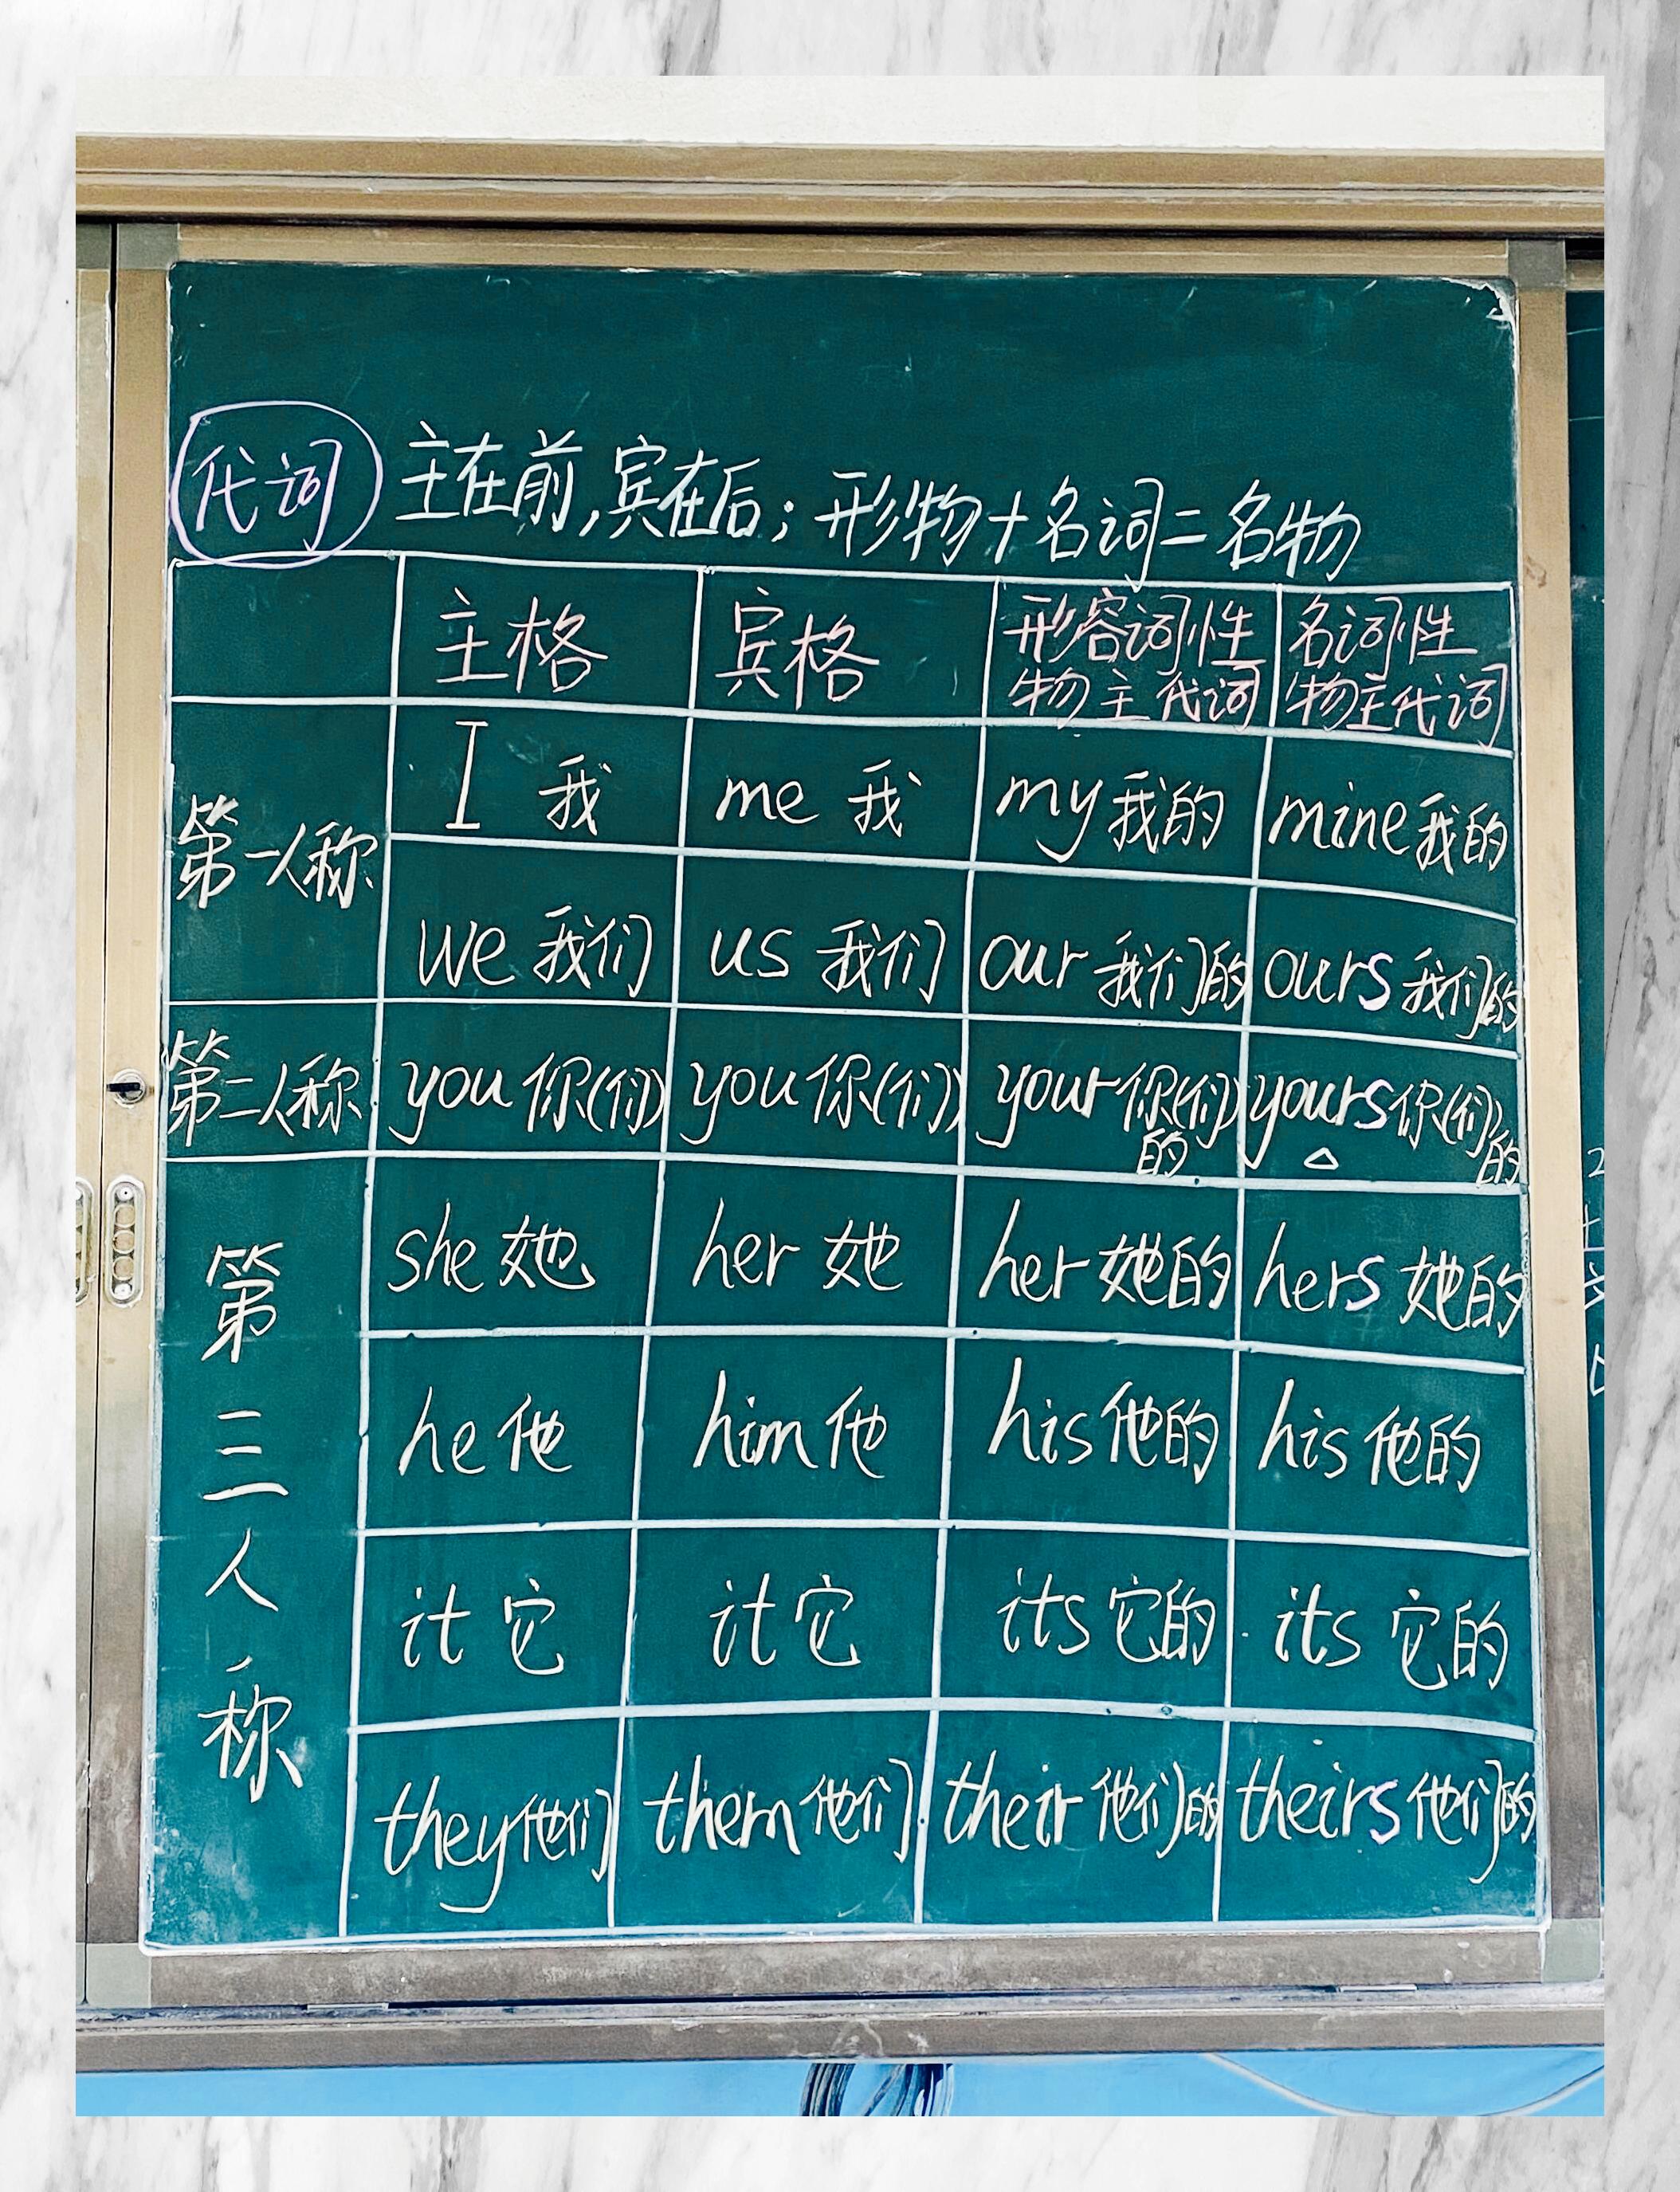 代词 主在前,宾在后;形物+名词=名物
主格 宾格 形容词性物主代词 名词性物主代词
第一人称 I 我 me 我 my 我的 mine 我的
we 我们 us 我们 our 我们的 ours 我们的
第二人称 you 你(们) you 你(们) your 你(们)的 yours 你(们)的
第三人称 she 她 her 她 her 她的 hers 她的
he 他 him 他 his 他的 his 他的
it 它 it 它 its 它的 its 它的
they 他们 them 他们 their 他们的 theirs 他们的